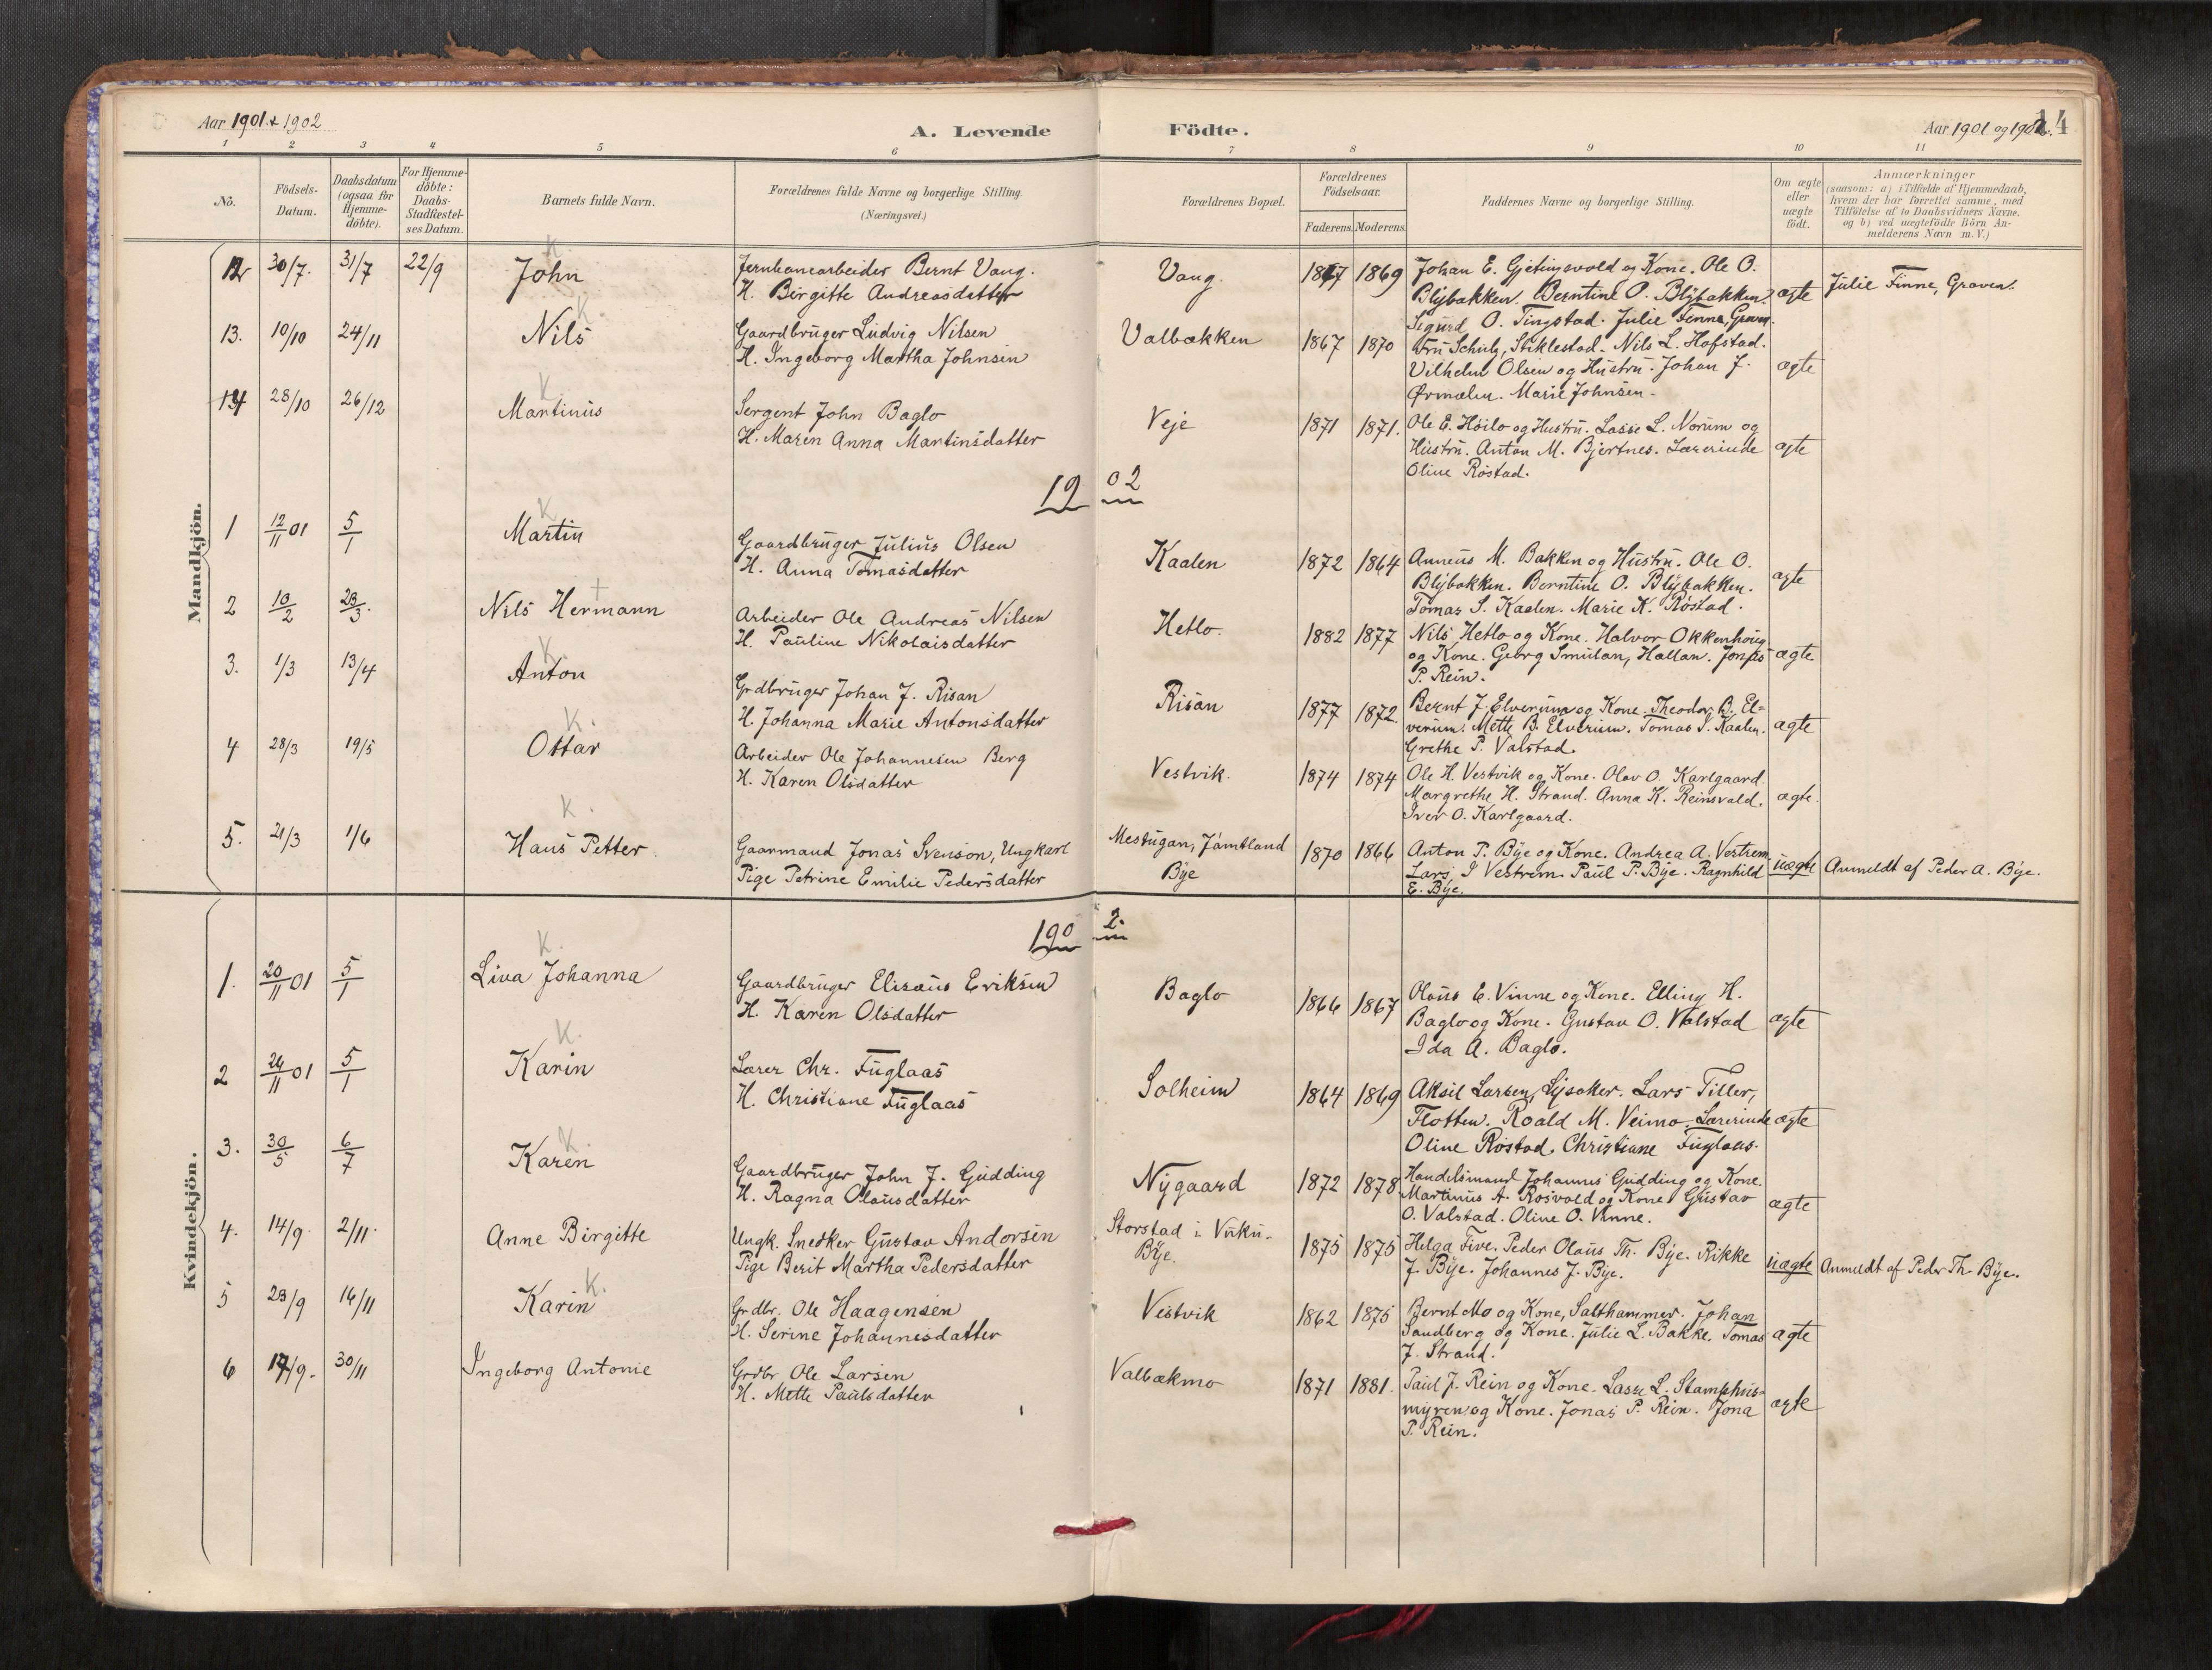 Aar 1901 & 1902
A. Levende
Födte.
Aar 1901 og 1902.
14
1 2 3 4 5 6 7 8 9 10 11
No.
Födsels-
Datum.
Daabsdatum
(ogsaa for
Hjemme-
döbte).
For Hjemme-
döbte:
Daabs-
Stadfæstel-
ses Datum.
Barnets fulde Navn.
Forældrenes fulde Navne og borgerlige Stilling.
(Næringsvei.)
Forældrenes Bopæl.
Forældrenes
Födselsaar.
Faderens. Moderens.
Faddernes Navne og borgerlige Stilling.
Om ægte
eller
uægte
födt.
Anmærkninger
(saasom: a) i Tilfælde af Hjemmedaab,
hvem der har forrettet samme, med
Tilföielse af to Daabsvidners Navne.
og b) ved uægtefödte Börn An-
melderens Navn m. V.)
Mandkjön.
12 30/7. 31/7 22/9 John K.
Jernbanearbeider Bernt Vang.
H. Birgitte Andreasdatter
Vang. 1867 1869
Johan E. Gjetingsvold og Kone. Ole O.
Blybakken. Berntine O. Blybakken.
Sigurd O. Tingstad. Julie Finne, Graven.
ægte
Julie Finne, Graven.
13. 10/10 24/11 Nils K.
Gaardbruger Ludvig Nilsen
H. Ingeborg Martha Johnsen
Valbækken 1867 1870
Fru Schulz, Stiklestad. Nils L. Hofstad.
Vilhelm Olsen og Hustru. Johan J.
Ørmælen. Marie Johnsen.
ægte
14 28/10 26/12 Martinus K
Sergent John Baglo
H. Maren Anna Martinsdatter
Veje 1871 1871.
Ole E. Høilo og Hustru. Lasse L. Norum og
Hustru. Anton M. Bjertnes. Lærerinde
Oline Røstad.
ægte
1902
1 12/11 01 5/1 Martin K
Gaardbruger Julius Olsen
H. Anna Tomasdatter
Kaalen 1872 1864
Anneus M. Bakken og Hustru. Ole O.
Blybakken. Berntine O. Blybakken.
Tomas S. Kaalen. Marie K. Røstad.
ægte
2 10/2 23/3. Nils Hermann +
Arbeider Ole Andreas Nilsen
H. Pauline Nikolaisdatter
Hetlo. 1882 1877
Nils Hetlo og Kone. Halvor Okkenhoug
og Kone. Georg Smulan, Hallan. Jonas
P. Rein.
ægte
3. 1/3 13/4 Anton K.
Grdbruger Johan J. Risan
H. Johanna Marie Antonsdatter
Risan 1877 1872.
Bernt J. Elverum og Kone. Theodor B. El-
verum. Mette B. Elverum. Tomas S. Kaalen.
Grethe P. Valstad.
ægte
4 28/3 19/5 Ottar K.
Arbeider Ole Johannesen Berg
H. Karen Olsdatter
Vestvik. 1874 1874
Ole H. Vestvik og Kone. Olav O. Karlgaard
Margrethe H. Strand. Anna K. Reinsvald.
Iver O. Karlgaard.
ægte.
5. 21/3 1/6 Hans Petter K.
Gaarmand Jonas Svenson, Ungkarl
Pige Petrine Emilie Pedersdatter
Mestugan, Jämtland
Bye
1870 1866
Anton P. Bye og Kone. Andrea A. Vestrem.
Lars J Vestrem. Paul P. Bye. Ragnhild
E. Bye.
uægte
Anmeldt af Peder A. Bye.
Kvindekjön.
1902.
1. 20/11 01 5/1 Liva Johanna K.
Gaardbruger Elisæus Eriksen
H. Karen Olsdatter
Baglo 1866 1867
Olaus E. Vinne og Kone. Elling H.
Baglo og Kone. Gustav O. Valstad
Ida A. Baglo.
ægte
2 24/11 01 5/1 Karin K.
Lærer Chr. Fuglaas
H. Christiane Fuglaas
Solheim 1864 1869
Aksil Larsen, Lysaker. Lars Tiller,
Flotten. Roald M. Veimo. Lærerinde
Oline Røstad. Christiane Fuglaas.
ægte
3. 30/5 6/7 Karen K.
Gaardbruger John J. Gudding
H. Ragna Olausdatter
Nygaard 1872 1878
Handelsmand Johannes Gudding og Kone.
Martinus A. Rosvold og Kone. Gustav
O. Valstad. Oline O. Vinne.
ægte
4. 14/9. 2/11. Anne Birgitte
Ungk. Snedker Gustav Andorsen
Pige Berit Martha Pedersdatter
Storstad i Vuku.
Bye.
1875 1875
Helga Five. Peder Olaus Th. Bye. Rikke
J. Bye. Johannes J. Bye.
uægte
Anmeldt af Peder Th. Bye.
5 23/9 16/11 Karin K.
Grdbr. Ole Haagensen
H. Serine Johannesdatter
Vestvik 1862 1875
Bernt Mo og Kone, Salthammer. Johan
Sandberg og Kone. Julie L. Bakke. Tomas
J. Strand.
ægte
6 17/9. 30/11 Ingeborg Antonie
Grdbr. Ole Larsen
H. Mette Paulsdatter
Valbækmo 1871 1881.
Paul J. Rein og Kone. Lasse L. Stamphus-
myren og Kone. Jonas P. Rein. Jona
P. Rein.
ægte